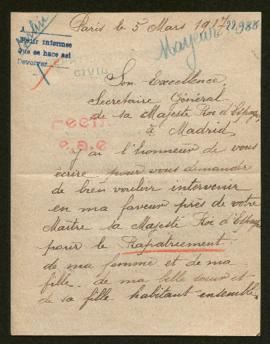 Paris le 5 Mars 1917
Para informese
que se hace así
Devolver
CIVIL
Son Excellence
Secrétaire Général
de sa Majesté Roi d'Espagne
à Madrid
J'ai l'honneur de vous
écrire pour vous demander
de bien vouloir intervenir
en ma faveur près de votre
Maître sa Majesté Roi d'Espagne
pour le Rapatriement
de ma femme et de ma
fille de ma belle sœur et
de sa fille habitant ensemble